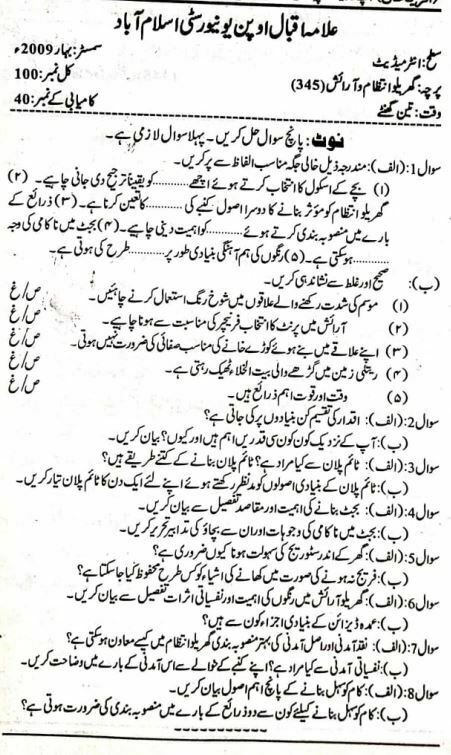 علامہ اقبال اوپن یونیورسٹی اسلام آباد
سطح: انٹرمیڈیٹ سمسٹر: بہار 2009ء
پرچہ: گھریلو انتظام و آرائش (345) کل نمبر: 100
وقت: تین گھنٹے کامیابی کے نمبر: 40
نوٹ: پانچ سوال حل کریں۔ پہلا سوال لازمی ہے۔
سوال1: (الف): مندرجہ ذیل خالی جگہ مناسب الفاظ سے پر کریں۔
(۱) بچے کے اسکول کا انتخاب کرتے ہوئے اچھے ............ کو یقیناً ترجیح دی جانی چاہیے۔ (۲)
گھریلو انتظام کو مؤثر بنانے کا دوسرا اصول کنبے کی ............ کا تعین کرنا ہے۔ (۳) ذرائع کے
بارے میں منصوبہ بندی کرتے ہوئے ............ کو اہمیت دینی چاہیے۔ (۴) بجٹ میں ناکامی کی وجہ
............ ہو سکتی ہے۔ (۵) رنگوں کی ہم آہنگی بنیادی طور پر ............ طرح کی ہوتی ہے۔
(ب): صحیح اور غلط سے نشاندہی کریں۔
(۱) موسم کی شدت رکھنے والے علاقوں میں شوخ رنگ استعمال کرنے چاہئیں۔ ص/غ
(۲) آرائش میں پرنٹ کا انتخاب فرنیچر کی مناسبت سے ہونا چاہیے۔ ص/غ
(۳) اپنے علاقے میں بنے ہوئے کوڑے خانے کی مناسب صفائی کی ضرورت نہیں ہوتی۔ ص/غ
(۴) ریتلی زمین میں گڑھے والی بیت الخلاء ٹھیک رہتی ہے۔ ص/غ
(۵) وقت اور قوت اہم ذرائع ہیں۔ ص/غ
سوال2: (الف): اقدار کی تقسیم کن بنیادوں پر کی جاتی ہے؟
(ب): آپ کے نزدیک کون کون سی قدریں اہم ہیں اور کیوں؟ بیان کریں۔
سوال3: (الف): ٹائم پلان سے کیا مراد ہے؟ ٹائم پلان بنانے کے کتنے طریقے ہیں؟
(ب): ٹائم پلان کے بنیادی اصولوں کو مدنظر رکھتے ہوئے اپنے لئے ایک دن کا ٹائم پلان تیار کریں۔
سوال4: (الف): بجٹ بنانے کی اہمیت اور مقاصد تفصیل سے بیان کریں۔
(ب): بجٹ میں ناکامی کی وجوہات اور ان سے بچاؤ کی تدابیر تحریر کریں۔
سوال5: (الف): گھر کے اندر سٹوریج کی سہولت ہونا کیوں ضروری ہے؟
(ب): فریج نہ ہونے کی صورت میں کھانے کی اشیاء کو کس طرح محفوظ کیا جا سکتا ہے؟
سوال6: (الف): گھریلو آرائش میں رنگوں کی اہمیت اور نفسیاتی اثرات تفصیل سے بیان کریں۔
(ب): عمدہ ڈیزائن کے بنیادی اجزاء کون سے ہیں؟
سوال7: (الف): نقد آمدنی اور اصل آمدنی کی بہتر منصوبہ بندی گھریلو انتظام میں کیسے معاون ہو سکتی ہے؟
(ب): نفسیاتی آمدنی سے کیا مراد ہے؟ اپنے کنبے کے حوالے سے اس آمدنی کے بارے میں وضاحت کریں۔
سوال8: (الف): کام کو سہل بنانے کے پانچ اہم اصول بیان کریں۔
(ب): کام کو سہل بنانے کیلئے کون سے دو ذرائع کے بارے میں منصوبہ بندی کی ضرورت ہوتی ہے؟